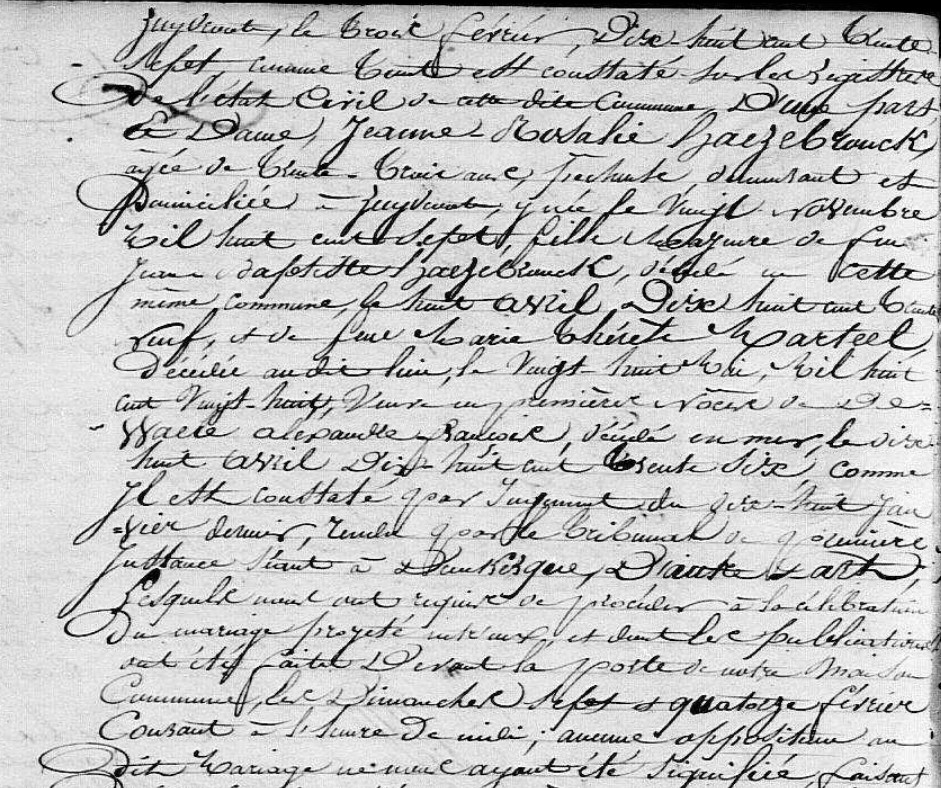 Zuydcoote, le trois février, Dix-huit cent trente-
sept comme tout est constaté sur les registres
De l'état Civil de cette dite Commune, D'une part,
Et Dame, Jeanne-Rosalie Hazebrouck,
agée de trente-trois ans, demeurant et
Domiciliée à Zuydcoote, y née le Vingt novembre
Mil huit cent sept, fille majeure de feu
Jean-Baptiste Hazebrouck, décédé en cette
même commune, le huit avril Dix huit cent trente
neuf, et de feue Marie Thérèse Marteel,
Décédée audit lieu, le Vingt-huit Mai, Mil huit
cent Vingt-huit, Veuve en premières Noces de De-
Waele alexandre françois, décédé en mer, le dix
huit avril Dix-huit cent trente Six, comme
Il est constaté par Jugement du dix-huit Jan
=vier dernier, rendu par le tribunal de première
Instance séant à Dunkerque, D'autre part;
Lesquels nous ont requis de procéder à la célébration
Du mariage projeté entr'eux, et dont les publications
ont été faites Devant la porte de notre Maison
Commune, les Dimanches sept & quatorze février
Courant à l'heure De midi; aucune opposition au
dit Mariage ne nous ayant été signifiée, faisant